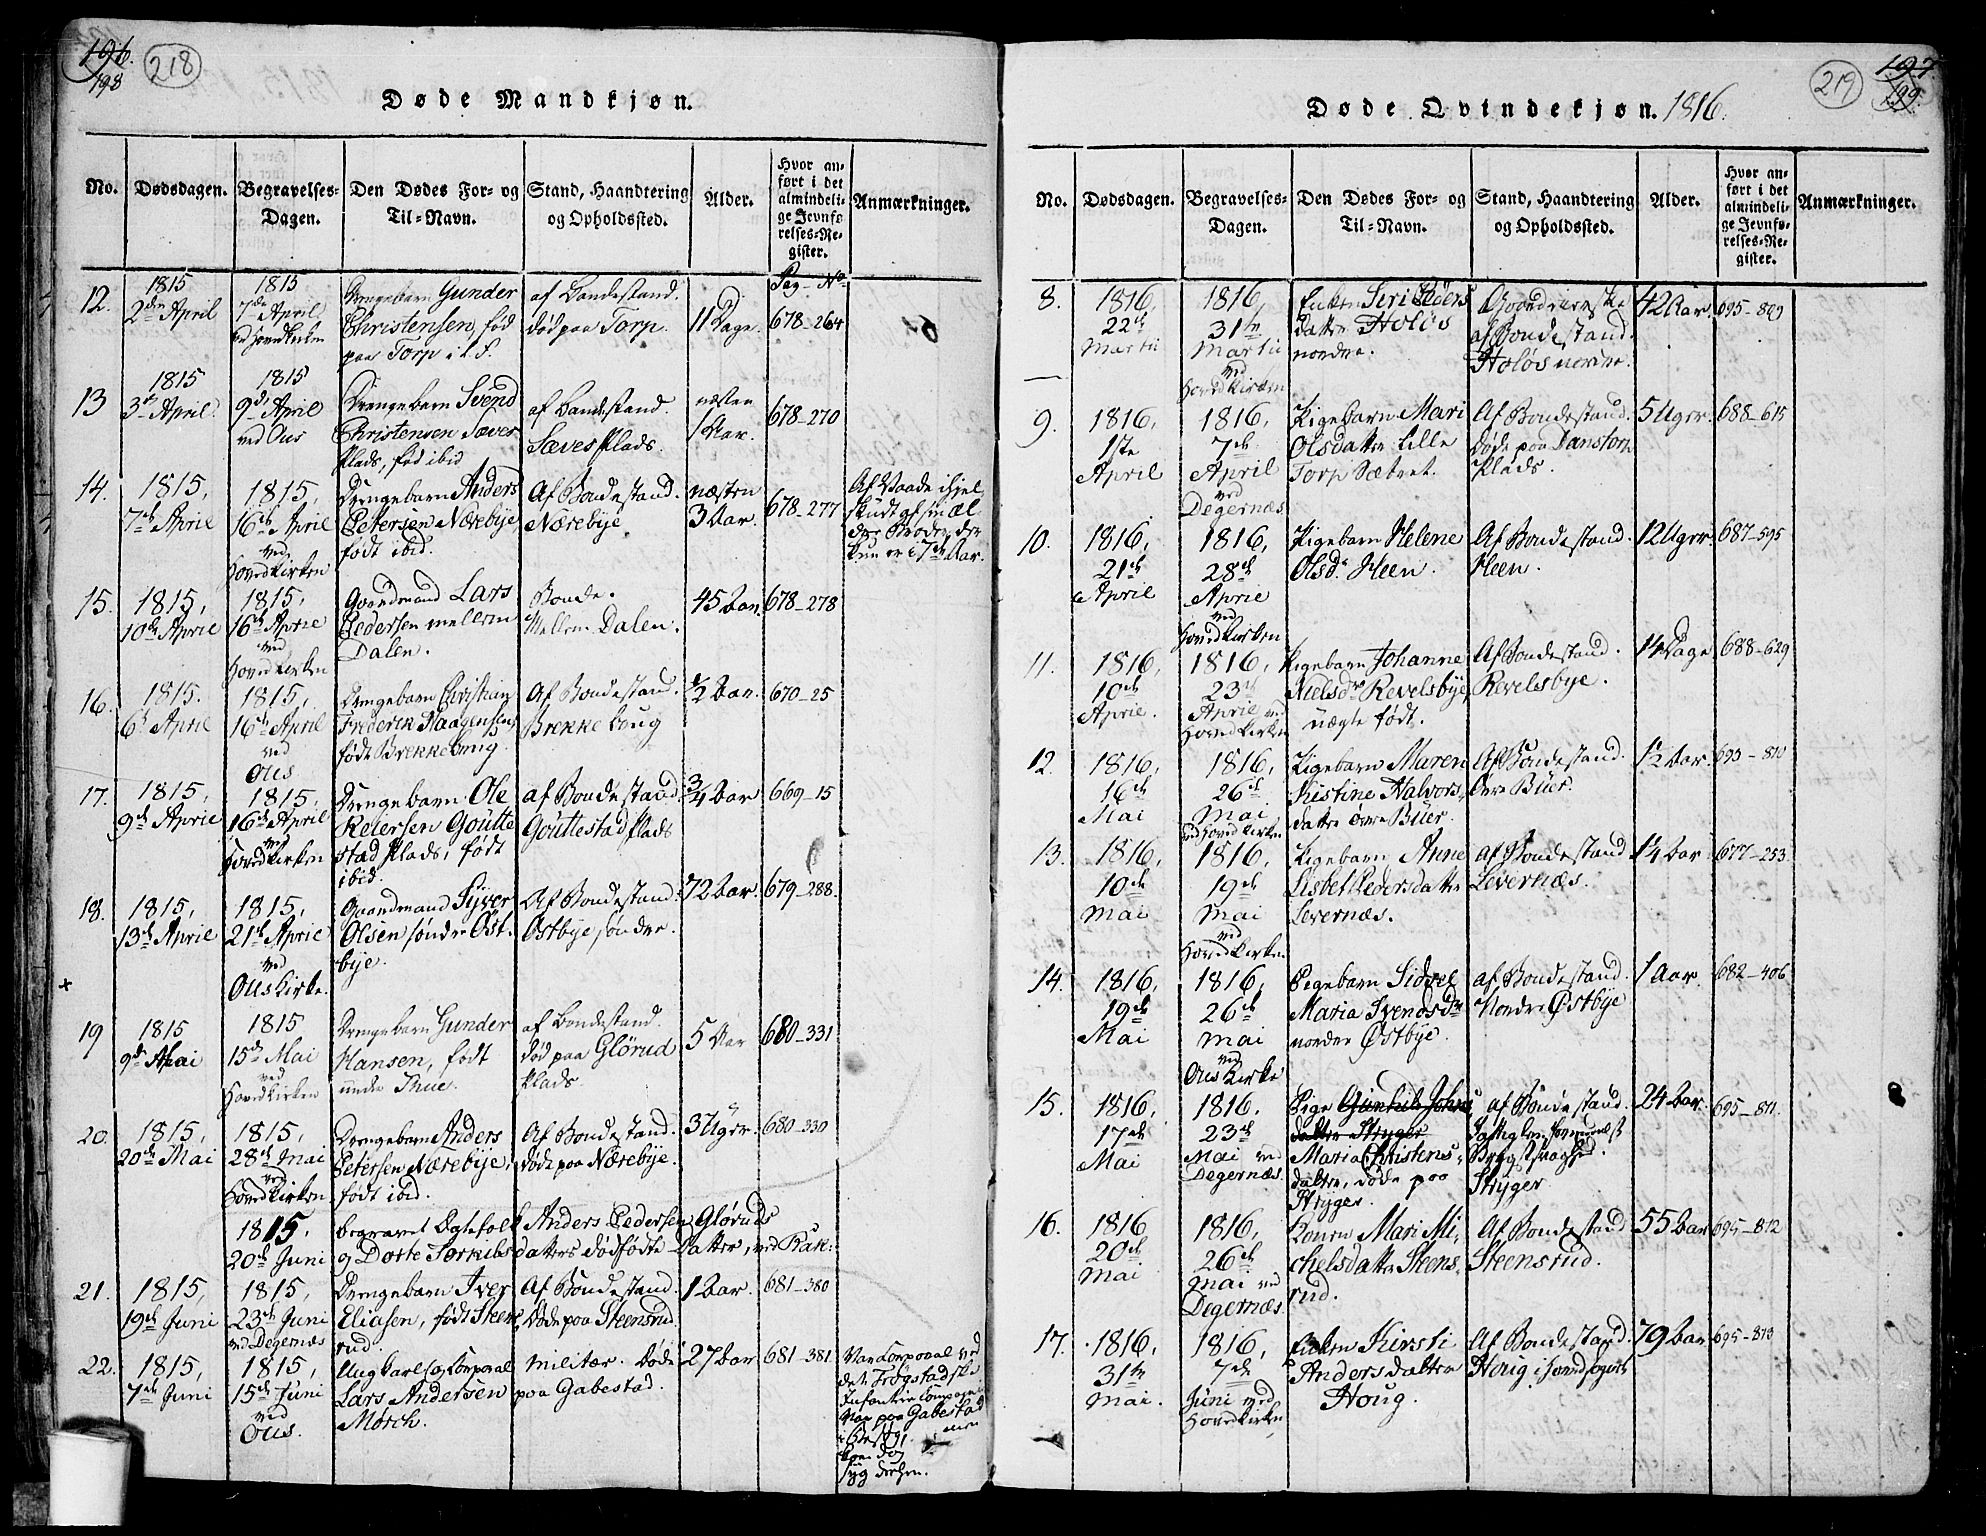 196.
198
218
Døde Mandkjøn.
No.
Dødsdagen.
Begravelses-
Dagen.
Den Dødes For- og
Til-Navn.
Stand, Haandtering
og Opholdssted.
Alder.
Hvor an-
ført i det
almindeli-
ge Jevnfø
relses-Re-
gister.
Anmærkninger.
Pag - No
12.
1815
2den April
1815
7de April
ved Hovedkirken
Drengebarn Gunder
Christensen, fød
paa Torp i t. S.
af Bondestand.
død paa Torp.
11 Dage.
678-264
13
1815
3die April.
1815
9de April
ved Ous
Drengebarn Svend
Christensen Sæves
Plads, fød ibid
af Bondestand.
Sæves Plads.
næsten
1 Aar.
678-270
14.
1815,
7de April
1815,
16de April
ved
Hovedkirken
Drengebarn Anders
Petersen Nærebye,
født ibid.
Af Bondestand.
Nærebye
næsten
3 Aar.
678-277
Af Vaade ihjel
skudt af sin æl
dre Broder, der
kun er i 7de Aar.
15.
1815,
10de April
1815,
16de April
ved
Hovedkirken
Gaardmand Lars
Pedersen mellem
Dalen.
Bonde.
Mellem Dalen.
45 Aar.
678-278
16.
1815.
6te April
1815,
16de April
ved
Ous
Drengebarn Christian
Frederik Haagensen,
født Brekkeboug.
Af Bondestand.
Brekkeboug
1/2 Aar.
670-25
17.
1815,
9de April
1815,
16de April
ved
Hovedkirken
Drengebarn Ole
Reiersen Goutte
stad Plads, født
ibid.
af Bondestand
Gouttestad Plads
3/4 Aar
669-15
18.
1815,
13de April
1815,
21de April
ved
Ous Kirke.
Gaardmand Syver
Olsen søndre Øst
bye.
Af Bondestand.
Østbye søndre.
72 Aar.
679-288.
19
1815
9de Mai
1815
15de Mai
ved
Hovedkirken
Drengebarn Gunder
Hansen, født
under Thue.
af Bondestand.
død paa Glørud
Plads
5 Aar
680-331
20.
1815,
20de Mai
1815,
28de Mai
ved
Hovedkirken
Drengebarn Anders
Petersen Nærebye,
født ibid.
Af Bondestand.
døde paa Nærebye.
3 Uger.
680-330
1815,
20de Juni
begravet Ægtefolk Anders Pedersen Gløruds
og Dorte Torkildsdatters dødfødte Datter, ved Rak:
21.
1815,
19de Juni
1815,
23de Juni
ved Degernæs
Drengebarn Iver
Eliasen, født Steens
rud.
Af Bondestand.
Døde paa Steensrud.
1 Aar.
681-380
22.
1815,
7de Juni
1815,
15de Juni
ved
Ous.
Ungkarl og Corporal
Lars Andersen
Mørch.
militær. Døde
paa Gabestad.
27 Aar
681-381
Var Corporal ved
det Trøgstadske
Infanterie Compagnie
Var paa Gabestad
i Besøg
syg derhen.
197
199
219
Døde Qvindekjøn. 1816.
No.
Dødsdagen.
Begravelses-
Dagen.
Den Dødes For- og
Til-Navn.
Stand, Haandtering
og Opholdssted.
Alder.
Hvor an-
ført i det
almindeli-
ge Jevnfø-
relses-Re-
gister.
Anmærkninger.
8.
1816,
22de
Martii
1816,
31te
Martii
ved
Hovedkirken
Enken Siri Peders
datter Holøs
nordre.
af Bondestand.
Holøs nordre.
42 Aar.
695-809
9.
1816,
1ste
April
1816,
7de
April
ved
Degernæs
Pigebarn Mari
Olsdatter Lille
Torp Sætret.
Af Bondestand.
døde paa Danstorp
Plads.
5 Uger.
688-615
10.
1816,
21de
April
1816,
28de
April
ved
Hovedkirken
Pigebarn Helene
Olsdr. Heen.
Af Bondestand.
Heen.
12 Uger.
687-595
11.
1816,
10de
April.
1816,
23de
April ved
Hovedkirken
Pigebarn Johanne
Nielsdr. Revelsbye,
uægte født.
Af Bondestand.
Revelsbye.
14 Dage
688-629
12.
1816,
16de
Mai
1816,
26de
Mai
ved Hovedkirken
Pigebarn Maren
Kistine Halvors,
datter øvre Buer.
Af Bondestand.
Øvre Buer.
1/2 Aar.
695-810
13.
1816,
10de
Mai
1816,
19de
Mai
ved
Hovedkirken
Pigebarn Anne
Lisbet Pedersdatter
Levernæs.
af Bondestand
Levernæs.
1/4 Aar
677-253.
14.
1816,
19de
Mai
1816,
26de
Mai
ved
Ous Kirke
Pigebarn Sidsel
Maria Svendsdtr
nordre Østbye.
af Bondestand.
Nordre Østbye
1 Aar.
682-406
15.
1816,
17de
Mai
1816.
23de
Mai ved
Degernæs
Pige Gunhild Johns
datter Stryger
Maria Christens,
datter, døde paa
Stryger.
af Bondestand.
Brystsvaghed.
Stryger
24 Aar.
695-811.
16.
1816
20de
Mai
1816,
26de
Mai ved
Degernæs
Konen Mari Mi,
chelsdatter Steens,
rud.
Af Bondestand
Steensrud.
55 Aar
695-812
17.
1816,
31te
Mai.
1816,
7de
Juni ved
Hovedkirken
Enken Kirsti
Andersdatter
Houg.
Af Bondestand.
Houg i
79 Aar
695-813